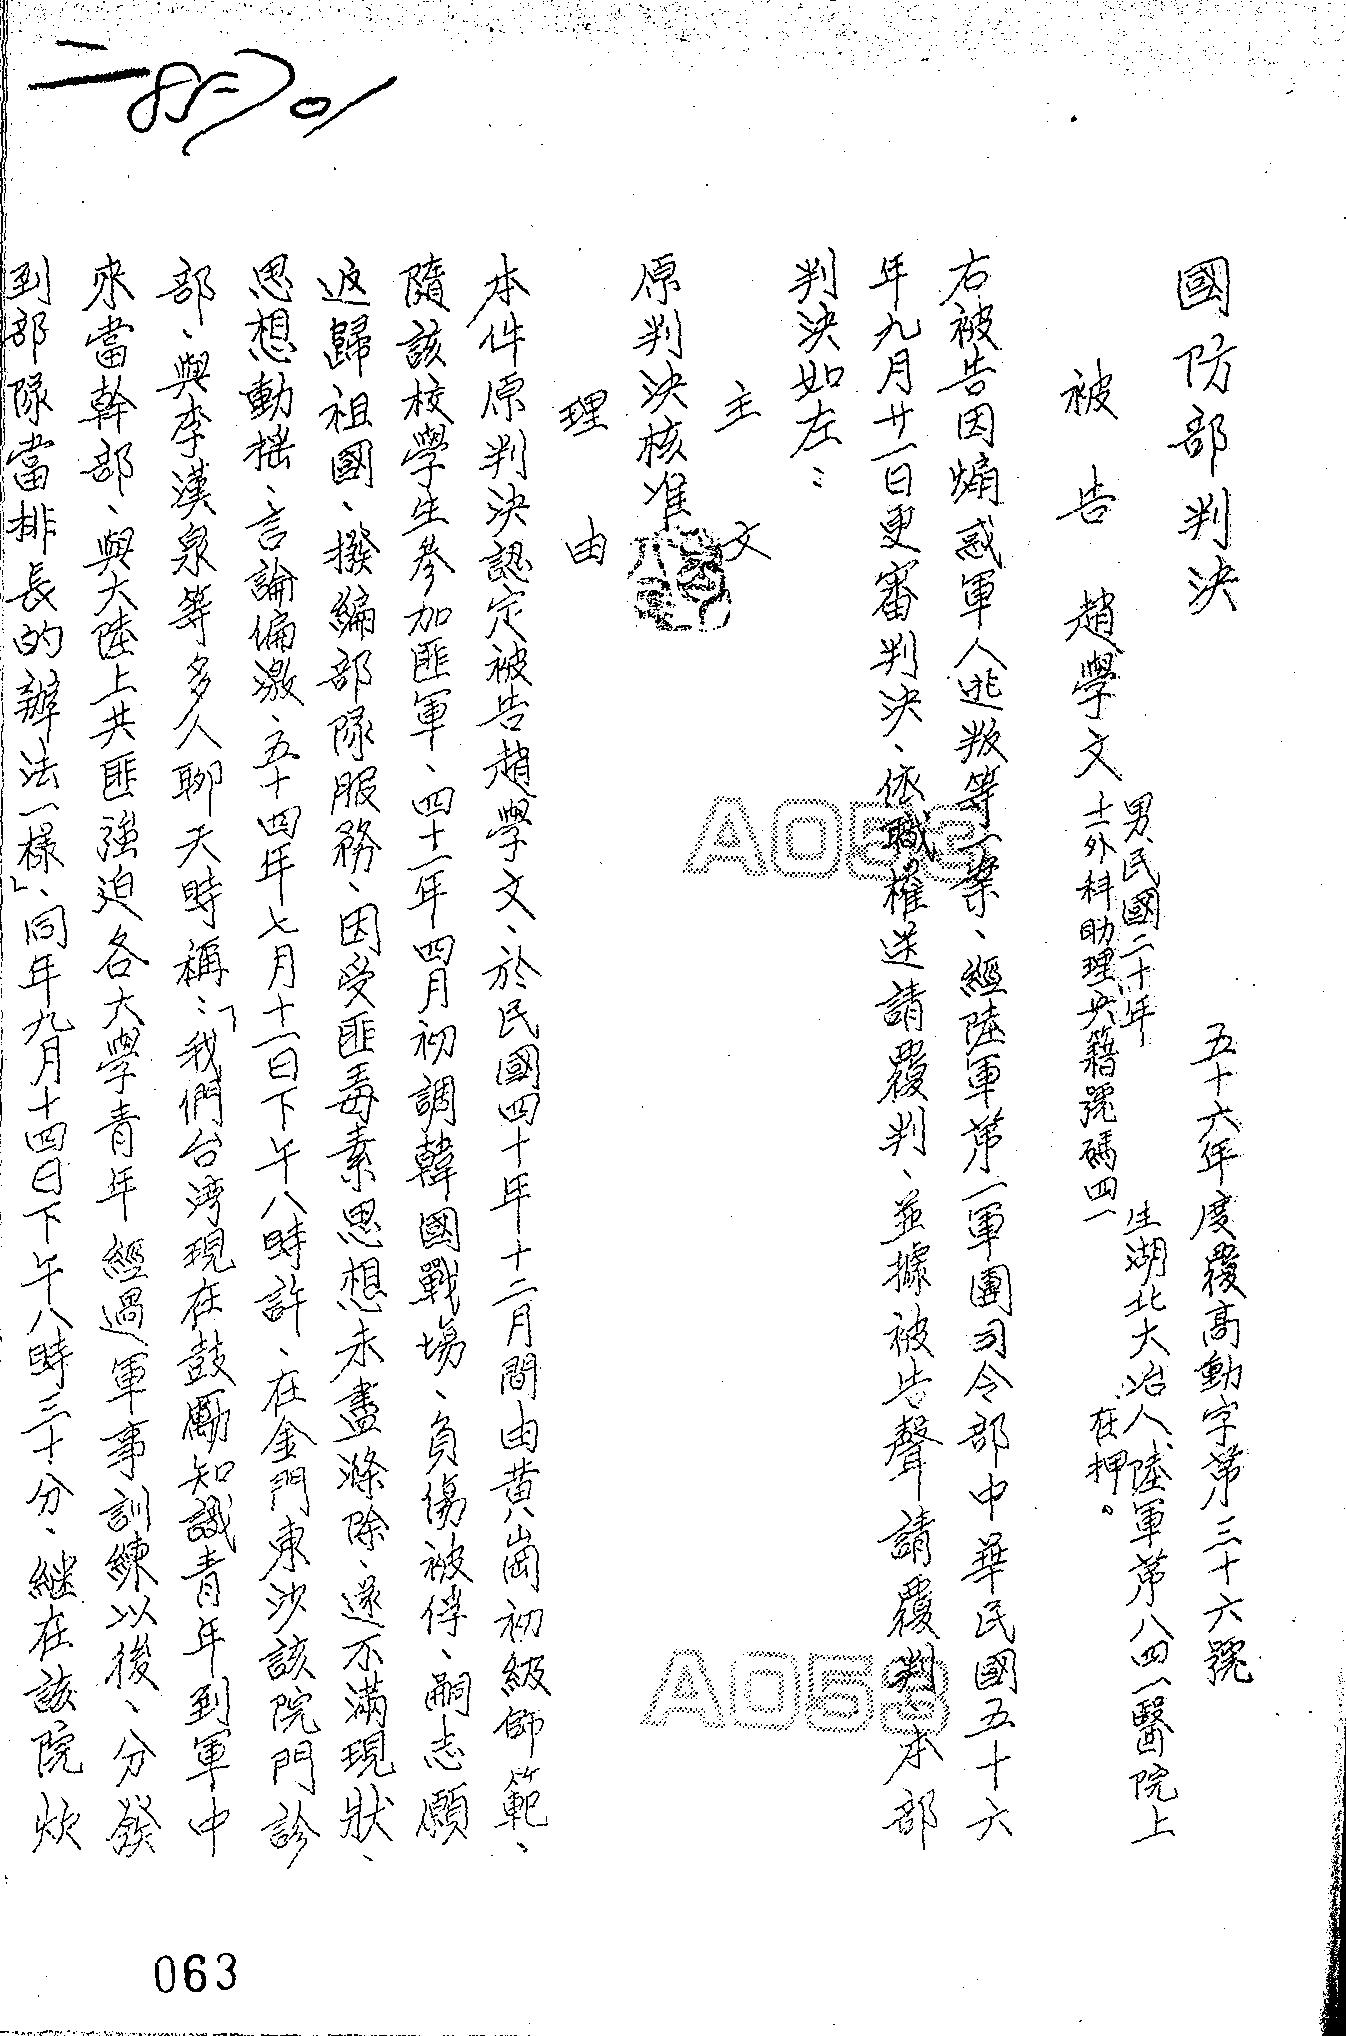 國防部判決
五十六年度覆高動字第三十六號
被告 趙學文 男、民國二十年 生湖北大冶人、陸軍第八四一醫院上
士外科助理兵籍號碼四一 在押。
右被告因煽惑軍人逃叛等一案、經陸軍第一軍團司令部中華民國五十六
年九月廿一日更審判決、依職權送請覆判、並據被告聲請覆判、本部
判決如左：
主文
原判決核准
理由
本件原判決認定被告趙學文、於民國四十年十二月間由黃崗初級師範、
隨該校學生參加匪軍、四十一年四月初調韓國戰場、負傷被俘、嗣志願
返歸祖國、撥編部隊服務、因受匪毒素思想未盡滌除、遂不滿現狀、
思想動搖、言論偏激、五十四年七月十一日下午八時許、在金門東沙該院門診
部、與李漢泉等多人聊天時稱：「我們台湾現在鼓勵知識青年到軍中
來當幹部、與大陸上共匪強迫各大學青年經過軍事訓練以後、分發
到部隊當排長的辦法一樣」、同年九月十四日下午八時三十分、継在該院炊
A053
A053
063